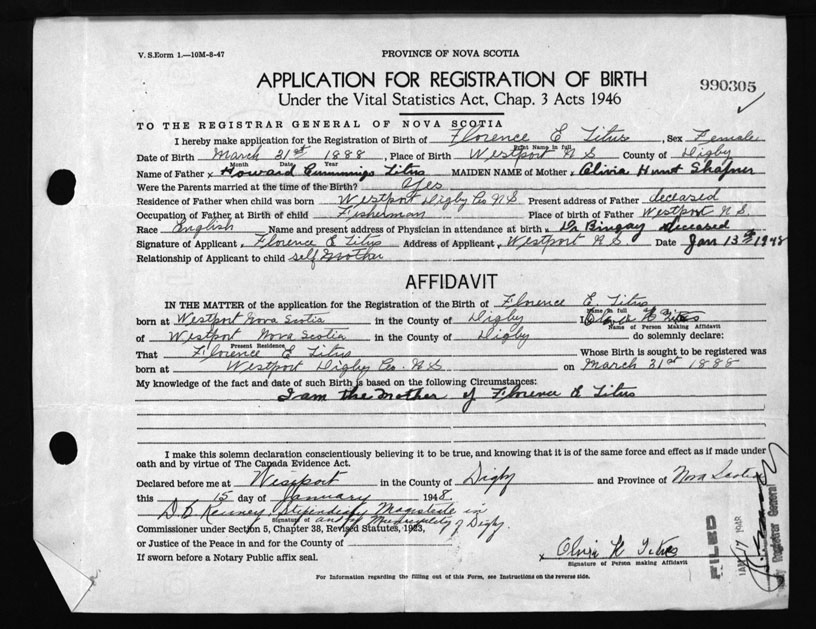 V. S. Form 1.—10M-8-47
PROVINCE OF NOVA SCOTIA
APPLICATION FOR REGISTRATION OF BIRTH
990305
Under the Vital Statistics Act, Chap. 3 Acts 1946
TO THE REGISTRAR GENERAL OF NOVA SCOTIA
I hereby make application for the Registration of Birth of Florence E Titus, Sex Female
Print Name in full
Date of Birth March 31st 1888, Place of Birth Westport N S County of Digby
Month Date Year
Name of Father x Howard Cummings Titus MAIDEN NAME of Mother x Olivia Hunt Shafner
Were the Parents married at the time of the Birth? Yes
Residence of Father when child was born Westport Digby Co N S Present address of Father deceased
Occupation of Father at Birth of child Fisherman Place of birth of Father Westport N S.
Race English Name and present address of Physician in attendance at birth x Dr Bingay deceased
Signature of Applicant x Florence E Titus Address of Applicant x Westport N S. Date Jan 13th 1948
Relationship of Applicant to child self Mother
AFFIDAVIT
IN THE MATTER of the application for the Registration of the Birth of Florence E. Titus
Name in full
born at Westport Nova Scotia in the County of Digby Olivia H Titus
Name of Person Making Affidavit
of Westport Nova Scotia in the County of Digby do solemnly declare:
Present Residence
That Florence E Titus Whose Birth is sought to be registered was
born at Westport Digby Co. N S on March 31st 1888
My knowledge of the fact and date of such Birth is based on the following Circumstances:
I am the mother of Florence E Titus
I make this solemn declaration conscientiously believing it to be true, and knowing that it is of the same force and effect as if made under
oath and by virtue of The Canada Evidence Act.
Declared before me at Westport in the County of Digby and Province of Nova Scotia
this 15 day of January 1948.
D. B Kenney. Stipendiary Magistrate in
Signature of and of Municipality of Digby
Commissioner under Section 5, Chapter 38, Revised Statutes, 1923,
or Justice of the Peace in and for the County of
x Olivia H Titus
If sworn before a Notary Public affix seal.
Signature of Person making Affidavit
For Information regarding the filling out of this Form, see Instructions on the reverse side.
FILED
JAN 17 1948
Registrar General